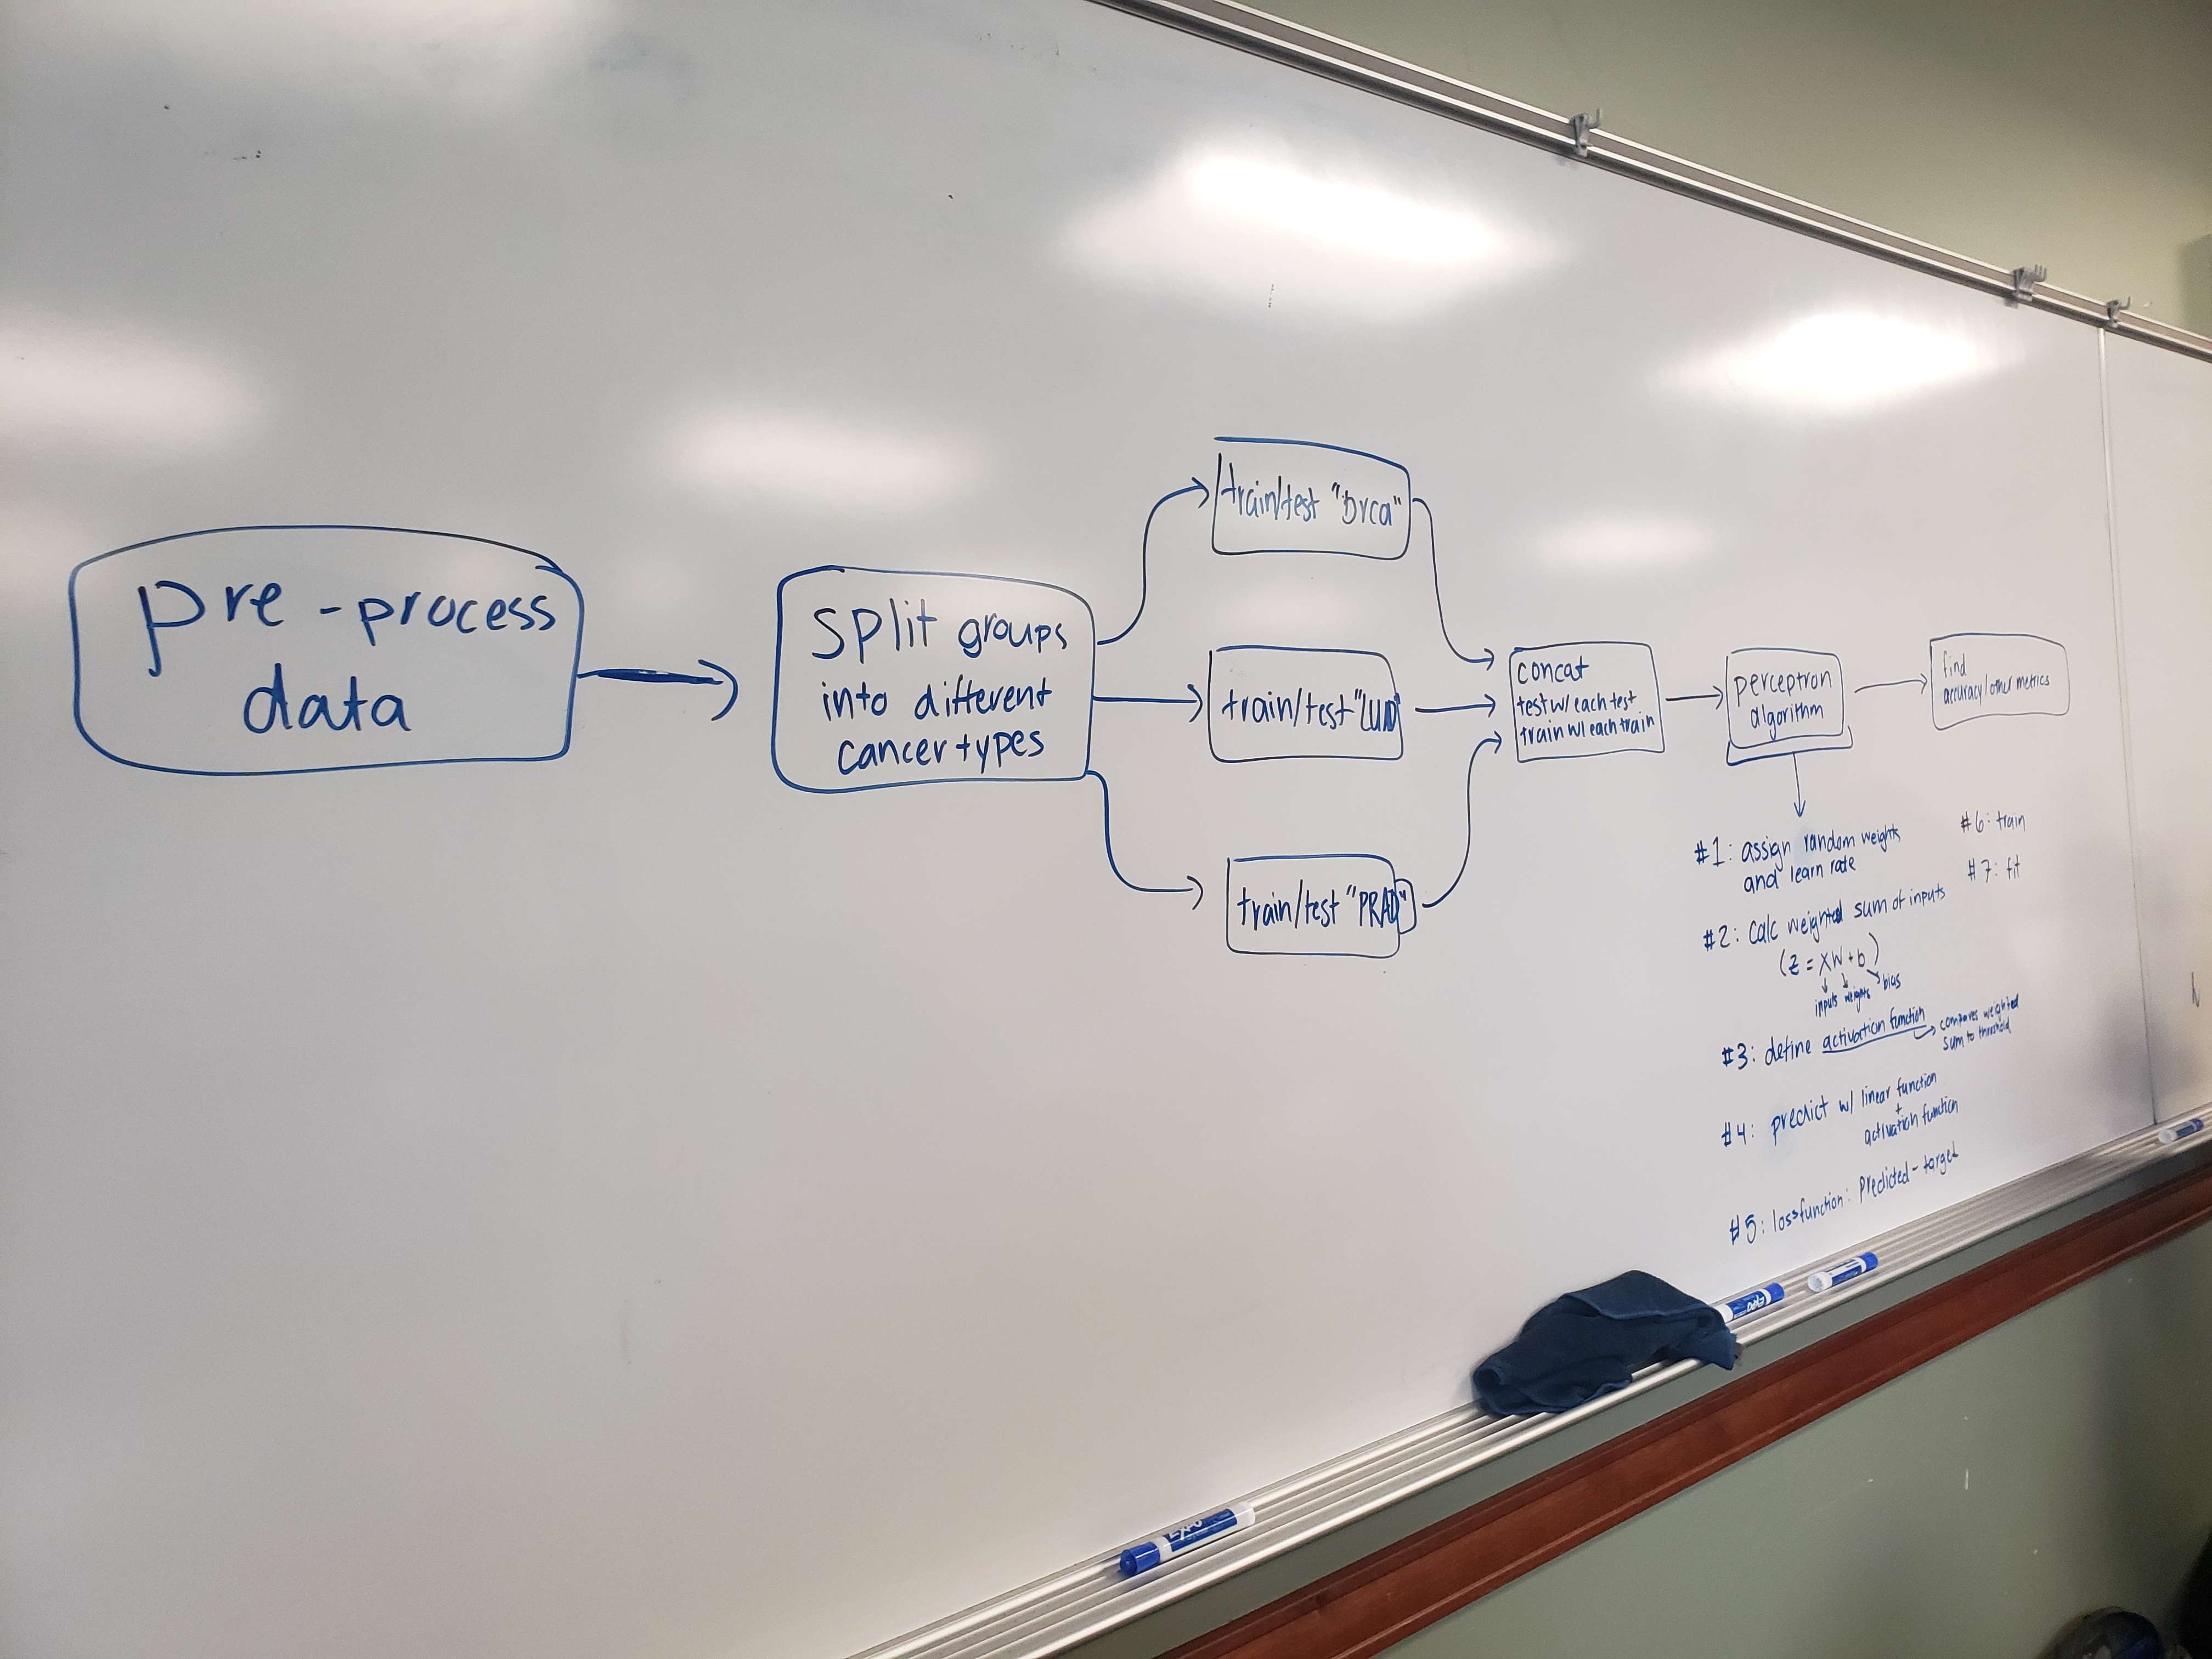 pre-process
data
split groups
into different
cancer types
train/test "brca"
train/test "LUAD"
train/test "PRAD"
concat
test w/ each test
train w/ each train
perceptron
algorithm
find
accuracy/other metrics
#1: assign random weights
and learn rate
#2: calc weighted sum of inputs
(z = XW + b)
inputs weights bias
#3: define activation function
compares weighted
sum to threshold
#4: predict w/ linear function
+
activation function
#5: loss function: predicted - target
#6: train
#7: fit
EXPO
EXPO